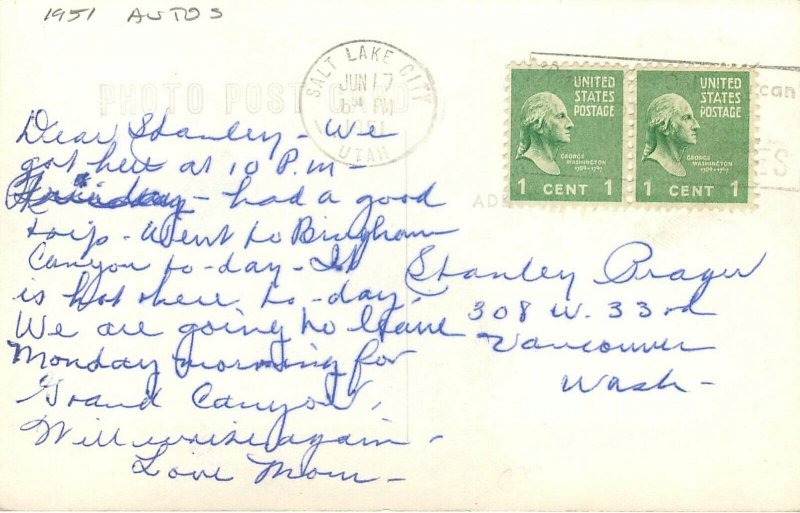 1951 AUTOS
SALT LAKE CITY
JUN 17
PM
1951
UTAH
UNITED STATES POSTAGE
GEORGE WASHINGTON
1789-1797
1 CENT 1
UNITED STATES POSTAGE
GEORGE WASHINGTON
1789-1797
1 CENT 1
PHOTO POST CARD
Dear Stanley - We
got here at 10 P.M -
- had a good
trip - Went to Bingham
Canyon to-day - It
is hot here to-day.
We are going to leave
Monday morning for
Grand Canyon,
Will write again -
Love Mom -
Stanley Prager
308 W. 33rd
Vancouver
Wash -